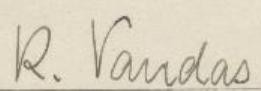 R. Vandas